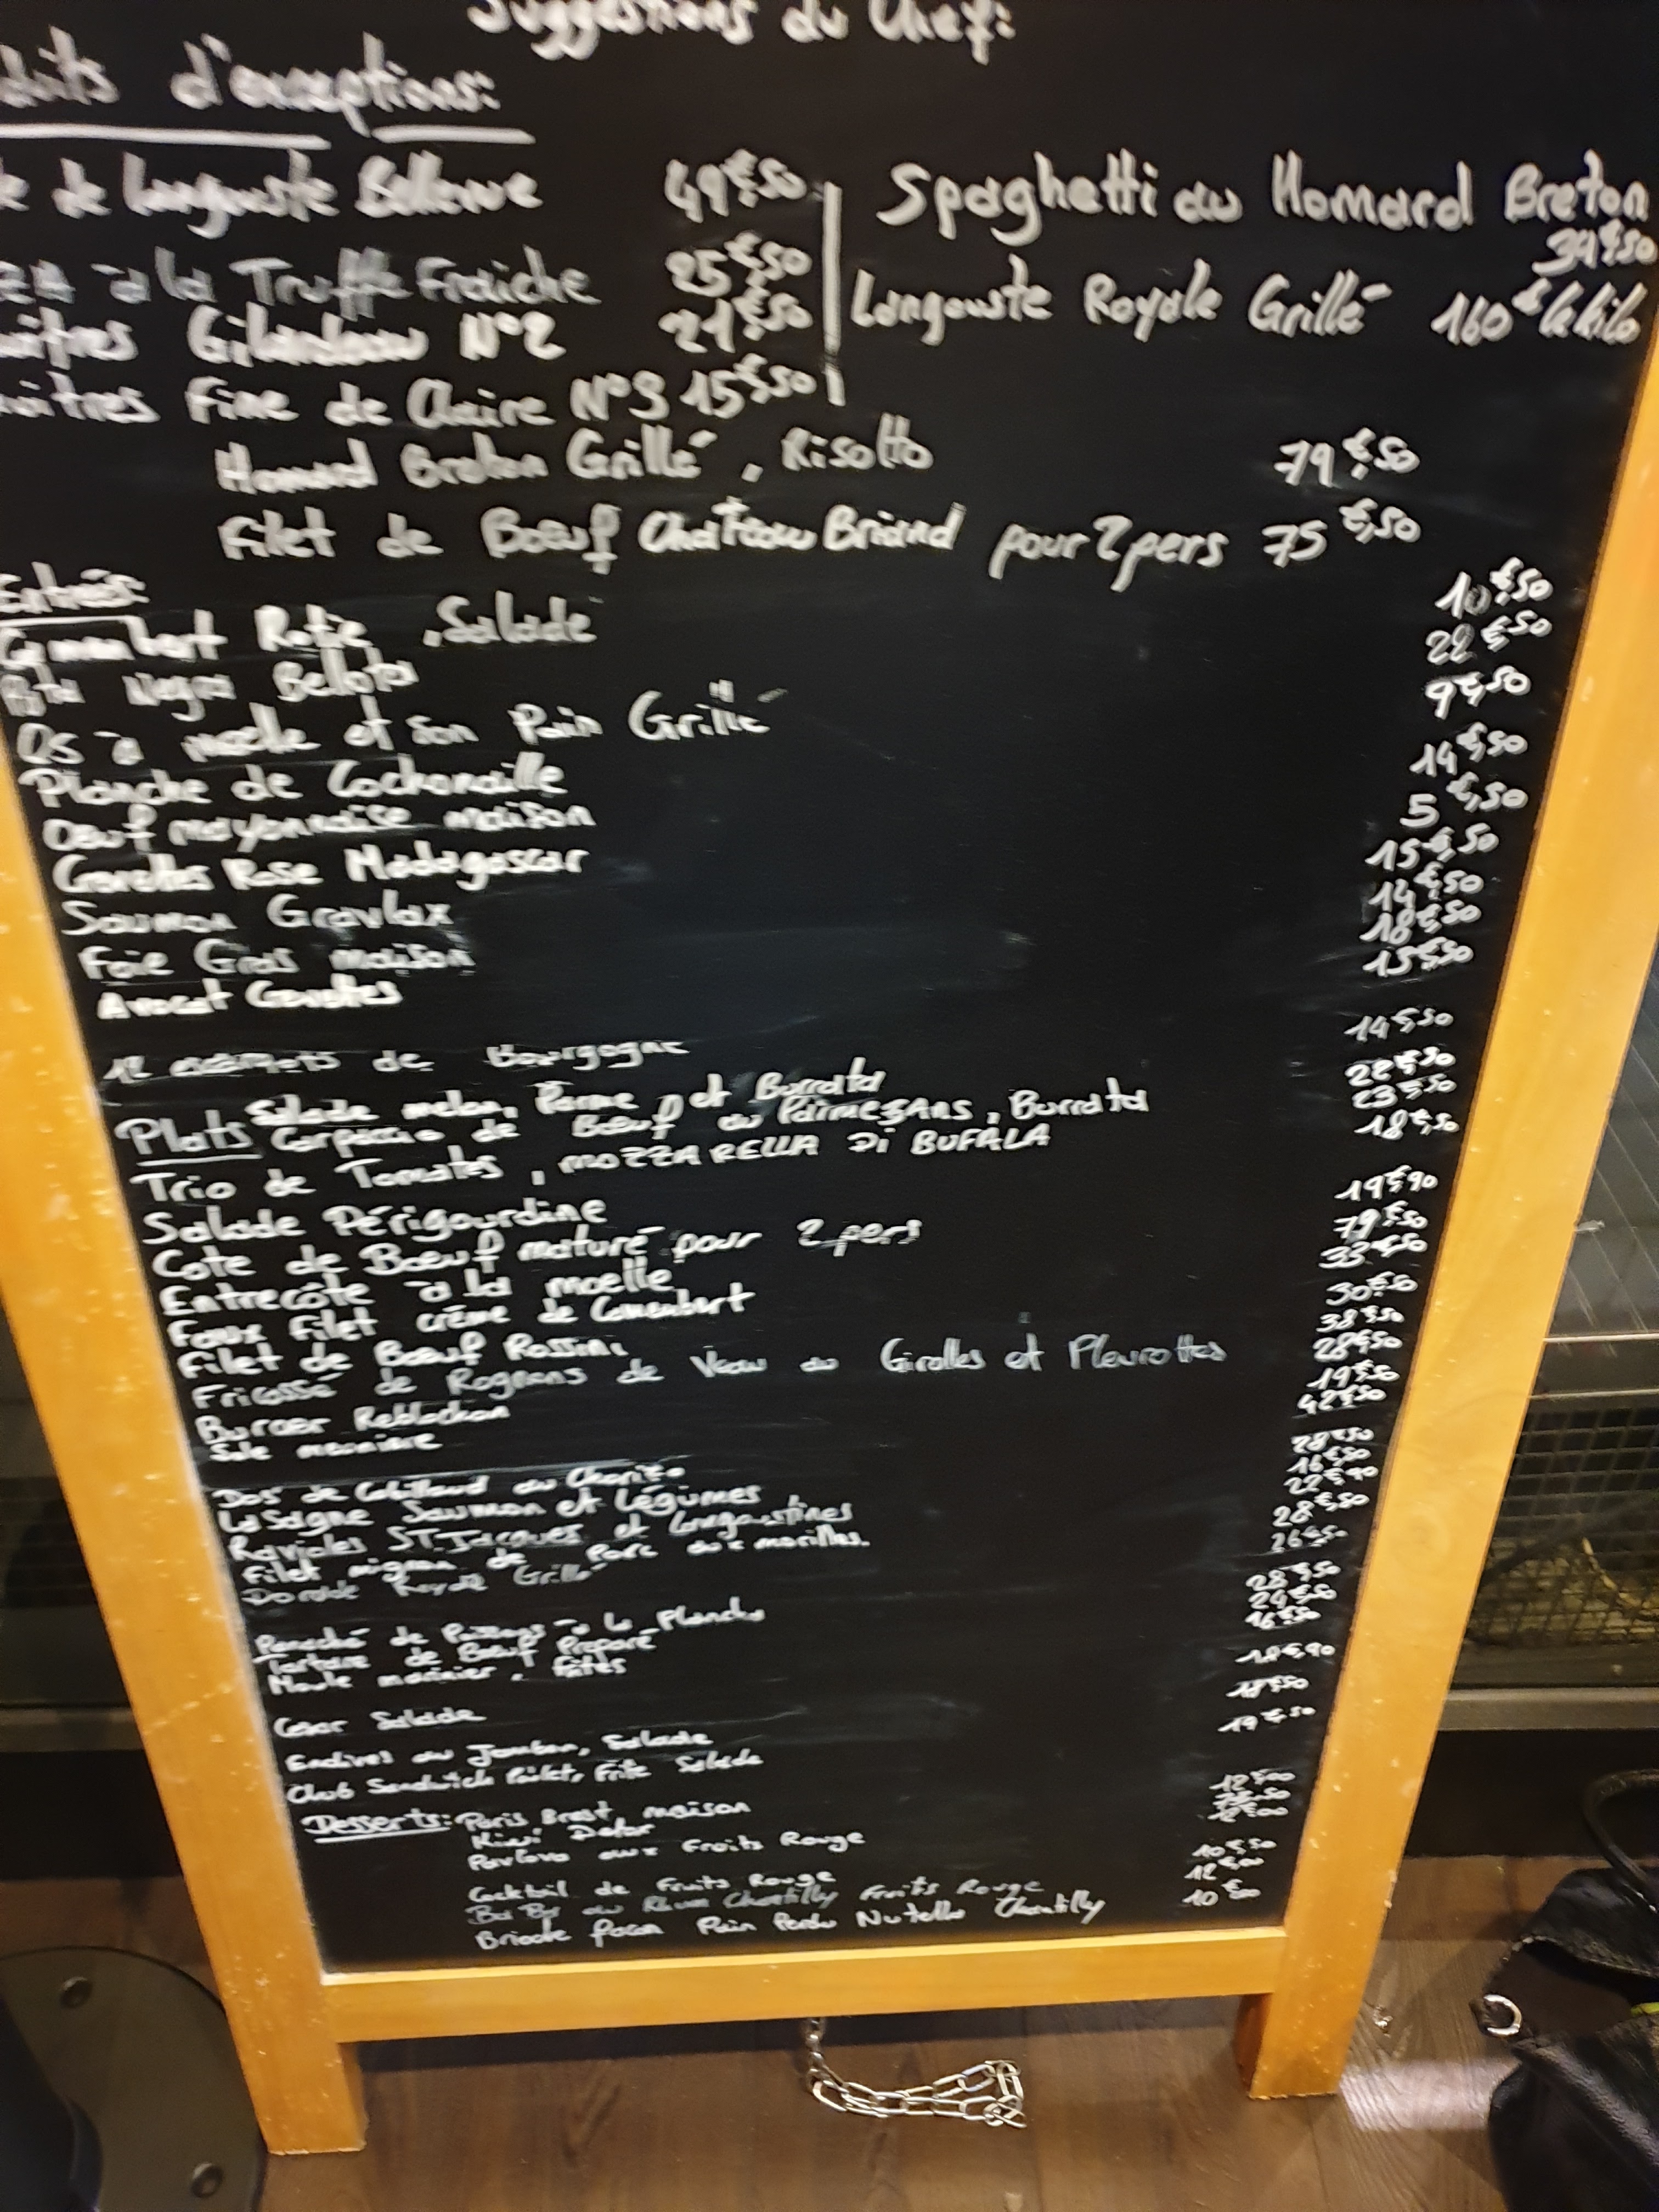 Suggestions du Chef:
d'exceptions:
de Langouste Bellevue 49€,50
à la Truffe Fraiche 25€,50
Gillardeau N°2 21€,50
Fine de Claire N°3 15€,50
Spaghetti au Homard Breton
39€,50
Langouste Royale Grillé 160€ le kilo
Homard Breton Grillé, Risotto 79€,50
Filet de Bœuf Chateau Briand pour 2 pers 75€,50
Entrés:
Rotie, Salade 10€,50
Pata Negra Bellota 22€,50
Os à moelle et son Pain Grillé 9€,50
Planche de Cochonaille 14€,50
Oeuf mayonnaise maison 5€,50
Gambas Rose Madagascar 15€,50
Saumon Gravlax 14€,50
Foie Gras maison 18€,50
Avocat Crevettes 15€,50
12 escargots de Bourgogne 14€,50
Salade melon, Parme, et Burrata 22€,50
Plats Carpaccio de Bœuf au PARMESANS, Burrata 23€,50
Trio de Tomates, MOZZARELLA DI BUFALA 18€,50
Salade Périgourdine 19€,90
Cote de Bœuf maturé pour 2 pers 79€,50
Entrecôte à la moelle 33€,50
Faux Filet crème de Camembert 30€,50
Filet de Bœuf Rossini 38€,50
Fricassé de Rognons de Veau au Girolles et Pleurottes 28€,50
Burger Reblochon 19€,50
Sole meuniere 42€,50
Dos de Cabillaud au Chorizo 28€,50
LaSagne Saumon et Légumes 16€,50
Ravioles ST.Jacques et Langoustines 22€,90
Filet mignon de Porc aux morilles. 28€,50
Dorade Royale Grillé 26€,50
Panaché de Poissons à la Plancha 28€,50
Tartare de Bœuf Préparé
Moule marinier, Frites 16€,50
Cesar Salade 18€,90
Endives au Jambon, Salade 18€,50
Club Sandwich Poulet, Frite Salade 19€,50
Desserts: Paris Brest maison 12€,00
Kiwi
Pavlova aux Fruits Rouge 12€,00
Cocktail de Fruits Rouge 10€,50
Ba Ba au Rhum Chantilly Fruits Rouge 12€,00
Brioche façon Pain Perdu Nutella Chantilly 10€,00